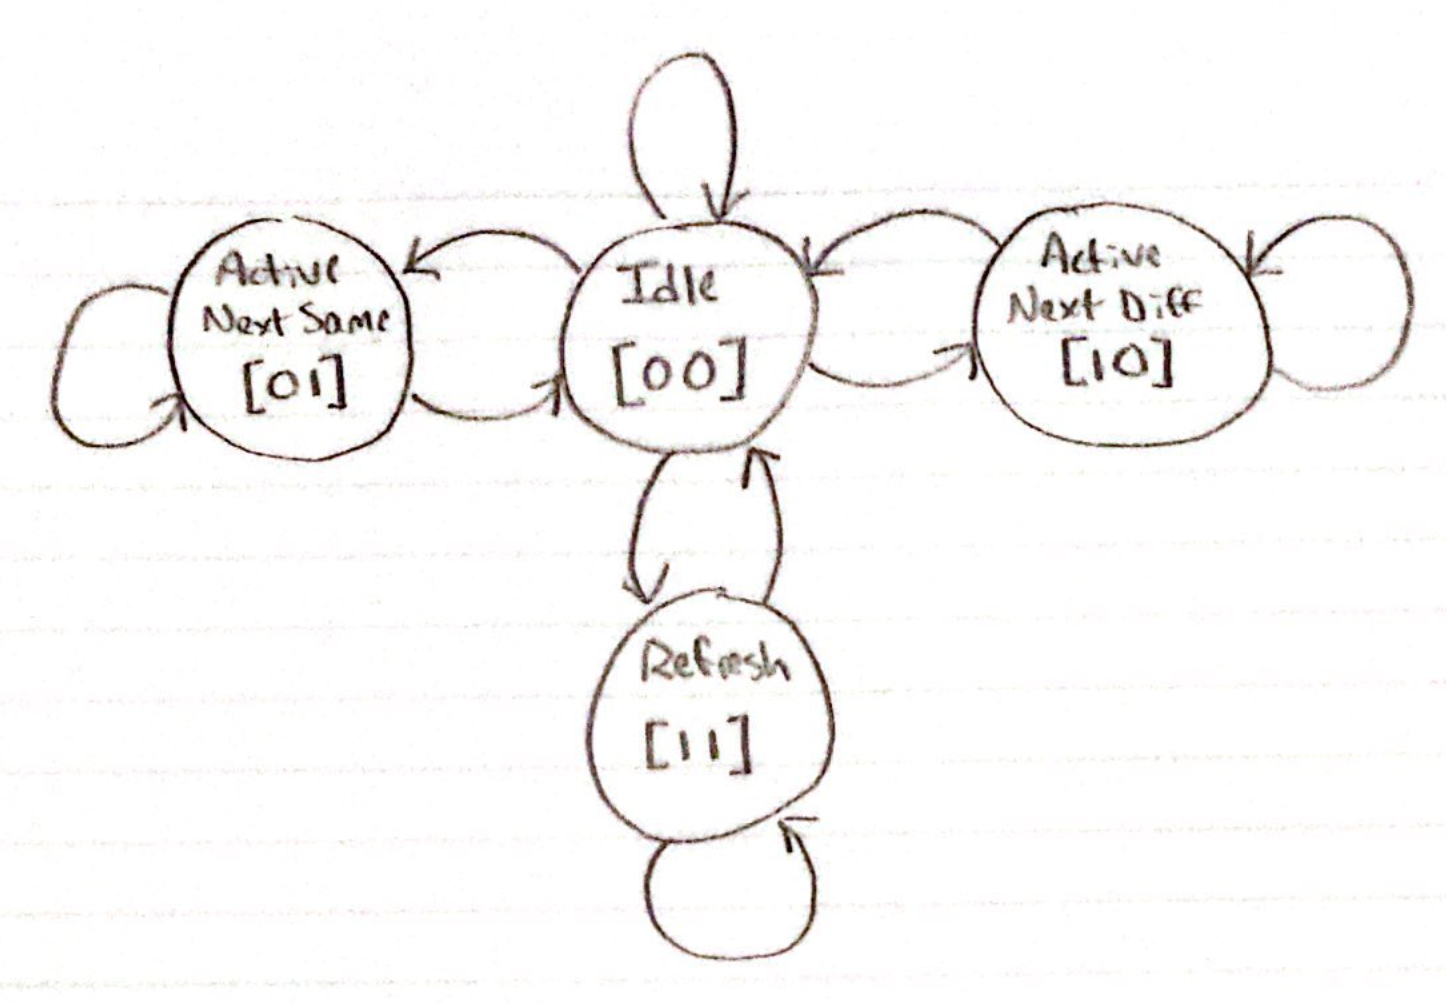 Active
Next Same
[01]
Idle
[00]
Active
Next Diff
[10]
Refresh
[11]